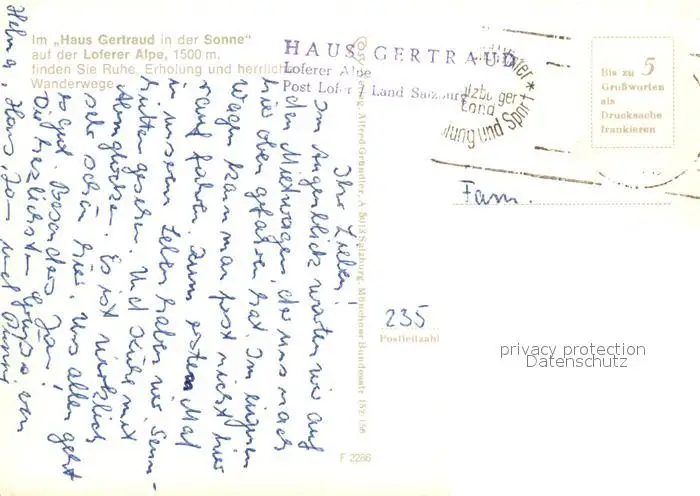 Im „Haus Gertraud in der Sonne“
auf der Loferer Alpe, 1500 m,
finden Sie Ruhe, Erholung und herrliche
Wanderwege.
HAUS GERTRAUD
Loferer Alpe
Post Lofer Land Salzburg
Bis zu 5
Grußworten
als
Drucksache
frankieren
Ihr Lieben!
Im Augenblick warten wir auf
den Mietwagen, der uns nach
hier oben gefahren hat. Im eigenen
Wagen kann man fast nicht hier
rauf fahren. Zum ersten Mal
in unserem Leben haben wir Senn-
hütten gesehen. Und Kühe mit
Almglocken. Es ist wirklich
sehr schön hier. Uns allen geht
es gut. Besonders Jan.
Die herzlichsten Grüße von
Helma, Hans, Jan und
Fam.
235
Postleitzahl
Alfred Gründler, A 5013 Salzburg, Münchner Bundesstr. 152-156
F 2286
privacy protection
Datenschutz